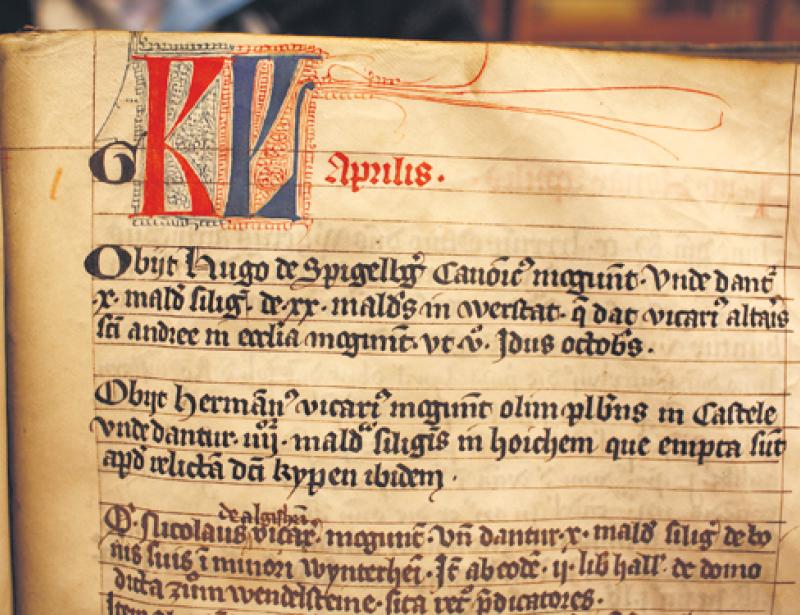 G KL Aprilis.
Obijt Hugo de Spigelbg᷒ Canoic᷒ mogunt̄· Vnde dant᷒
·x· mald̄ siliḡ· de·xx· mald̄s in werstat· q̄ dat vicari᷒ altar̄is
sc̄i andree in ecc̄lia mogunt̄· vt ·v̊· Jdus octob̄s·
Obijt Herman̄᷒ vicari᷒ mogunt̄ olim plb̄nus in Castele
vnde dantur· iiij· mald̄ siliginis in hoichem que empta sūt
apd̄ relictā dc̄i kypen ibidem·
de algishei
O· Nicolaus vicar᷒· mogunt̄· vn̄ dantur·x· mald̄ siliḡ de bo
nis suis ī minori wynterhei· Jt̄ ab eodē· ij· lib hall̄· de domo
dicta zům wendelsteine· sita